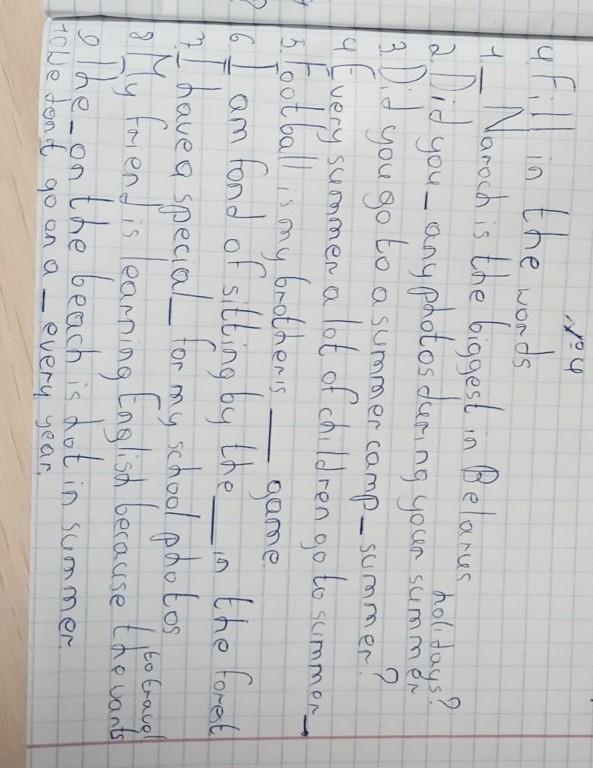 №4
4 Fill in the words
1. _ Naroch is the biggest in Belarus
2. Did you _ any photos during your summer holidays?
3 Did you go to a summer camp _ summer?
4 Every summer a lot of children go to summer _
5. Football is my brother's ___ game.
6 I am fond of sitting by the ___ in the forest
7. I have a special _ for my school photos
8 My friend is learning English because the wants to travel
9 The _ on the beach is hot in summer
10 We dont go on a _ every year.